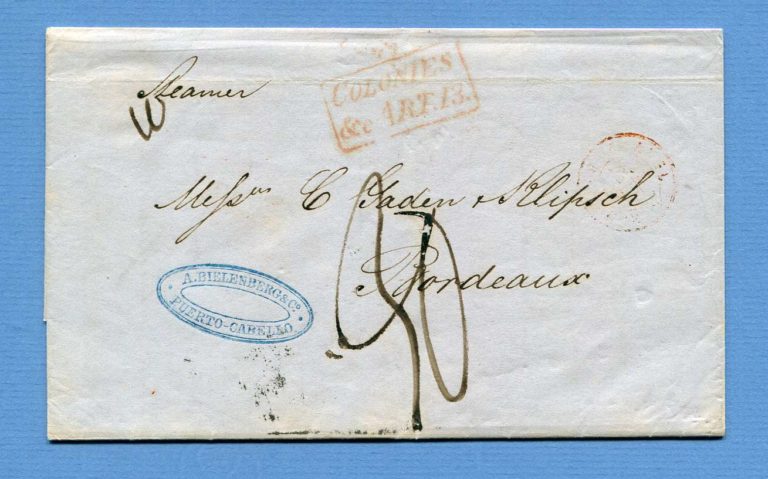 Steamer
COLONIES
&c ART.13.
Messrs C Gaden & Klipsch
Bordeaux
A. BIELENBERG & Co.
PUERTO-CABELLO